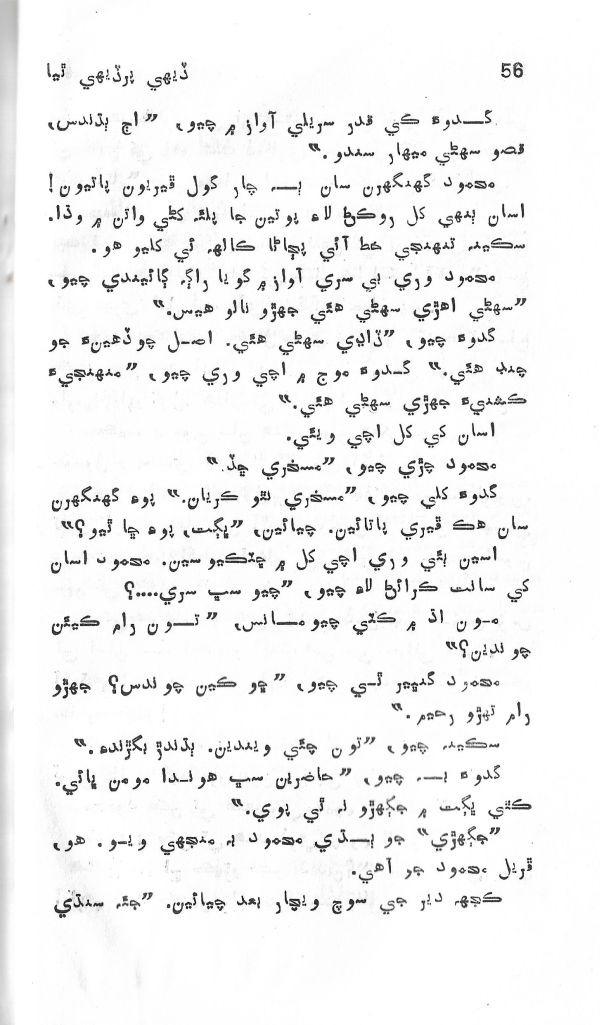 56 ڏيھي پرڏيھي ٿيا
گدوءَ کي قدر سريلي آواز ۾ چيو، ”اڄ ٻڌندس،
قصو سھڻي ميھار سندو.“
محمود گھنگھرن سان بہ چار گول ڦيريون پاتيون!
اسان ٻنھي کل روڪڻ لاءِ پوتين جا پلئہ کڻي واتن ۾ وڌا.
سڪينہ تنھنجي خط آئي پڄاڻا ڪالھہ ئي کليو هو.
محمود وري بي سري آواز ۾ گويا راڳہ ڳائيندي چيو،
”سھڻي اھڙي سھڻي ھئي جھڙو نالو ھيس.“
گدوءَ چيو، ”ڏاڍي سھڻي ھئي. اصل چوڏھينءَ جو
چنڊ ھئي.“ گدوءَ موج ۾ اچي وري چيو، ”منھنجيءَ
ڪشنيءَ جھڙي سھڻي ھئي.“
اسان کي کل اچي ويئي.
محمود چڙي چيو، ”مسخري ڇڏ.“
گدوءَ کلي چيو، ”مسخري نٿو ڪريان.“ پوءِ گھنگھرن
سان ھڪ ڦيري پاتائين. چيائين، ”ڀڳت، پوءِ ڇا ٿيو؟“
اسين ٻئي وري اچي کل ۾ ڇٽڪيوسين. محمود اسان
کي سانت ڪرائڻ لاءِ چيو، ”چيو سڀ سري....؟
مون اڌ ۾ ڪٽي چيومانس، ”تون رام ڪيئن
چوندين؟“
محمود گنڀير ٿي چيو، ”ڇو ڪين چوندس؟ جھڙو
رام تھڙو رحيم.“
سڪينہ چيو، ”تون ڇٽي ويندين. ٻڌندڙ بگڙندءِ.“
گدوءَ بہ چيو، ”حاضرين سڀ ھوندا مومن ڀائي.
ڪٿي ڀڳت ۾ جھڳڙو نہ ٿي پوي.“
”جھڳڙي“ جو ٻڌي محمود بہ منجھي ويو. ھو،
ڦريل محمود جو آھي.
ڪجھہ دير جي سوچ ويچار بعد چيائين. ”جتہ سنڌي